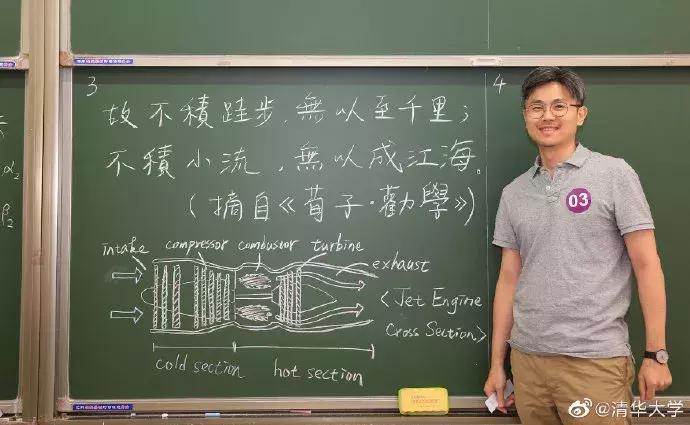 3
故不積跬步,無以至千里;
不積小流,無以成江海。
(摘自《荀子·勸學》)
intake compressor combustor turbine
exhaust
<Jet Engine
Cross Section>
cold section
hot section
4
03
α2
β2
@清华大学